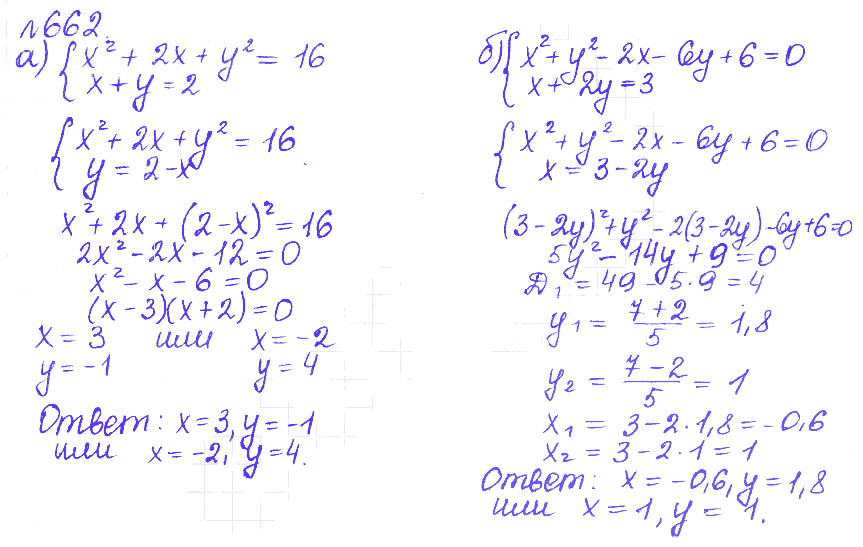 №662.
а) { x² + 2x + y² = 16
x + y = 2
{ x² + 2x + y² = 16
y = 2 - x
x² + 2x + (2 - x)² = 16
2x² - 2x - 12 = 0
x² - x - 6 = 0
(x - 3)(x + 2) = 0
x = 3 или x = -2
y = -1 y = 4
Ответ: x = 3, y = -1
или x = -2, y = 4.
б) { x² + y² - 2x - 6y + 6 = 0
x + 2y = 3
{ x² + y² - 2x - 6y + 6 = 0
x = 3 - 2y
(3 - 2y)² + y² - 2(3 - 2y) - 6y + 6 = 0
5y² - 14y + 9 = 0
Д₁ = 49 - 5·9 = 4
y₁ = (7 + 2)/5 = 1,8
y₂ = (7 - 2)/5 = 1
x₁ = 3 - 2·1,8 = -0,6
x₂ = 3 - 2·1 = 1
Ответ: x = -0,6, y = 1,8
или x = 1, y = 1.